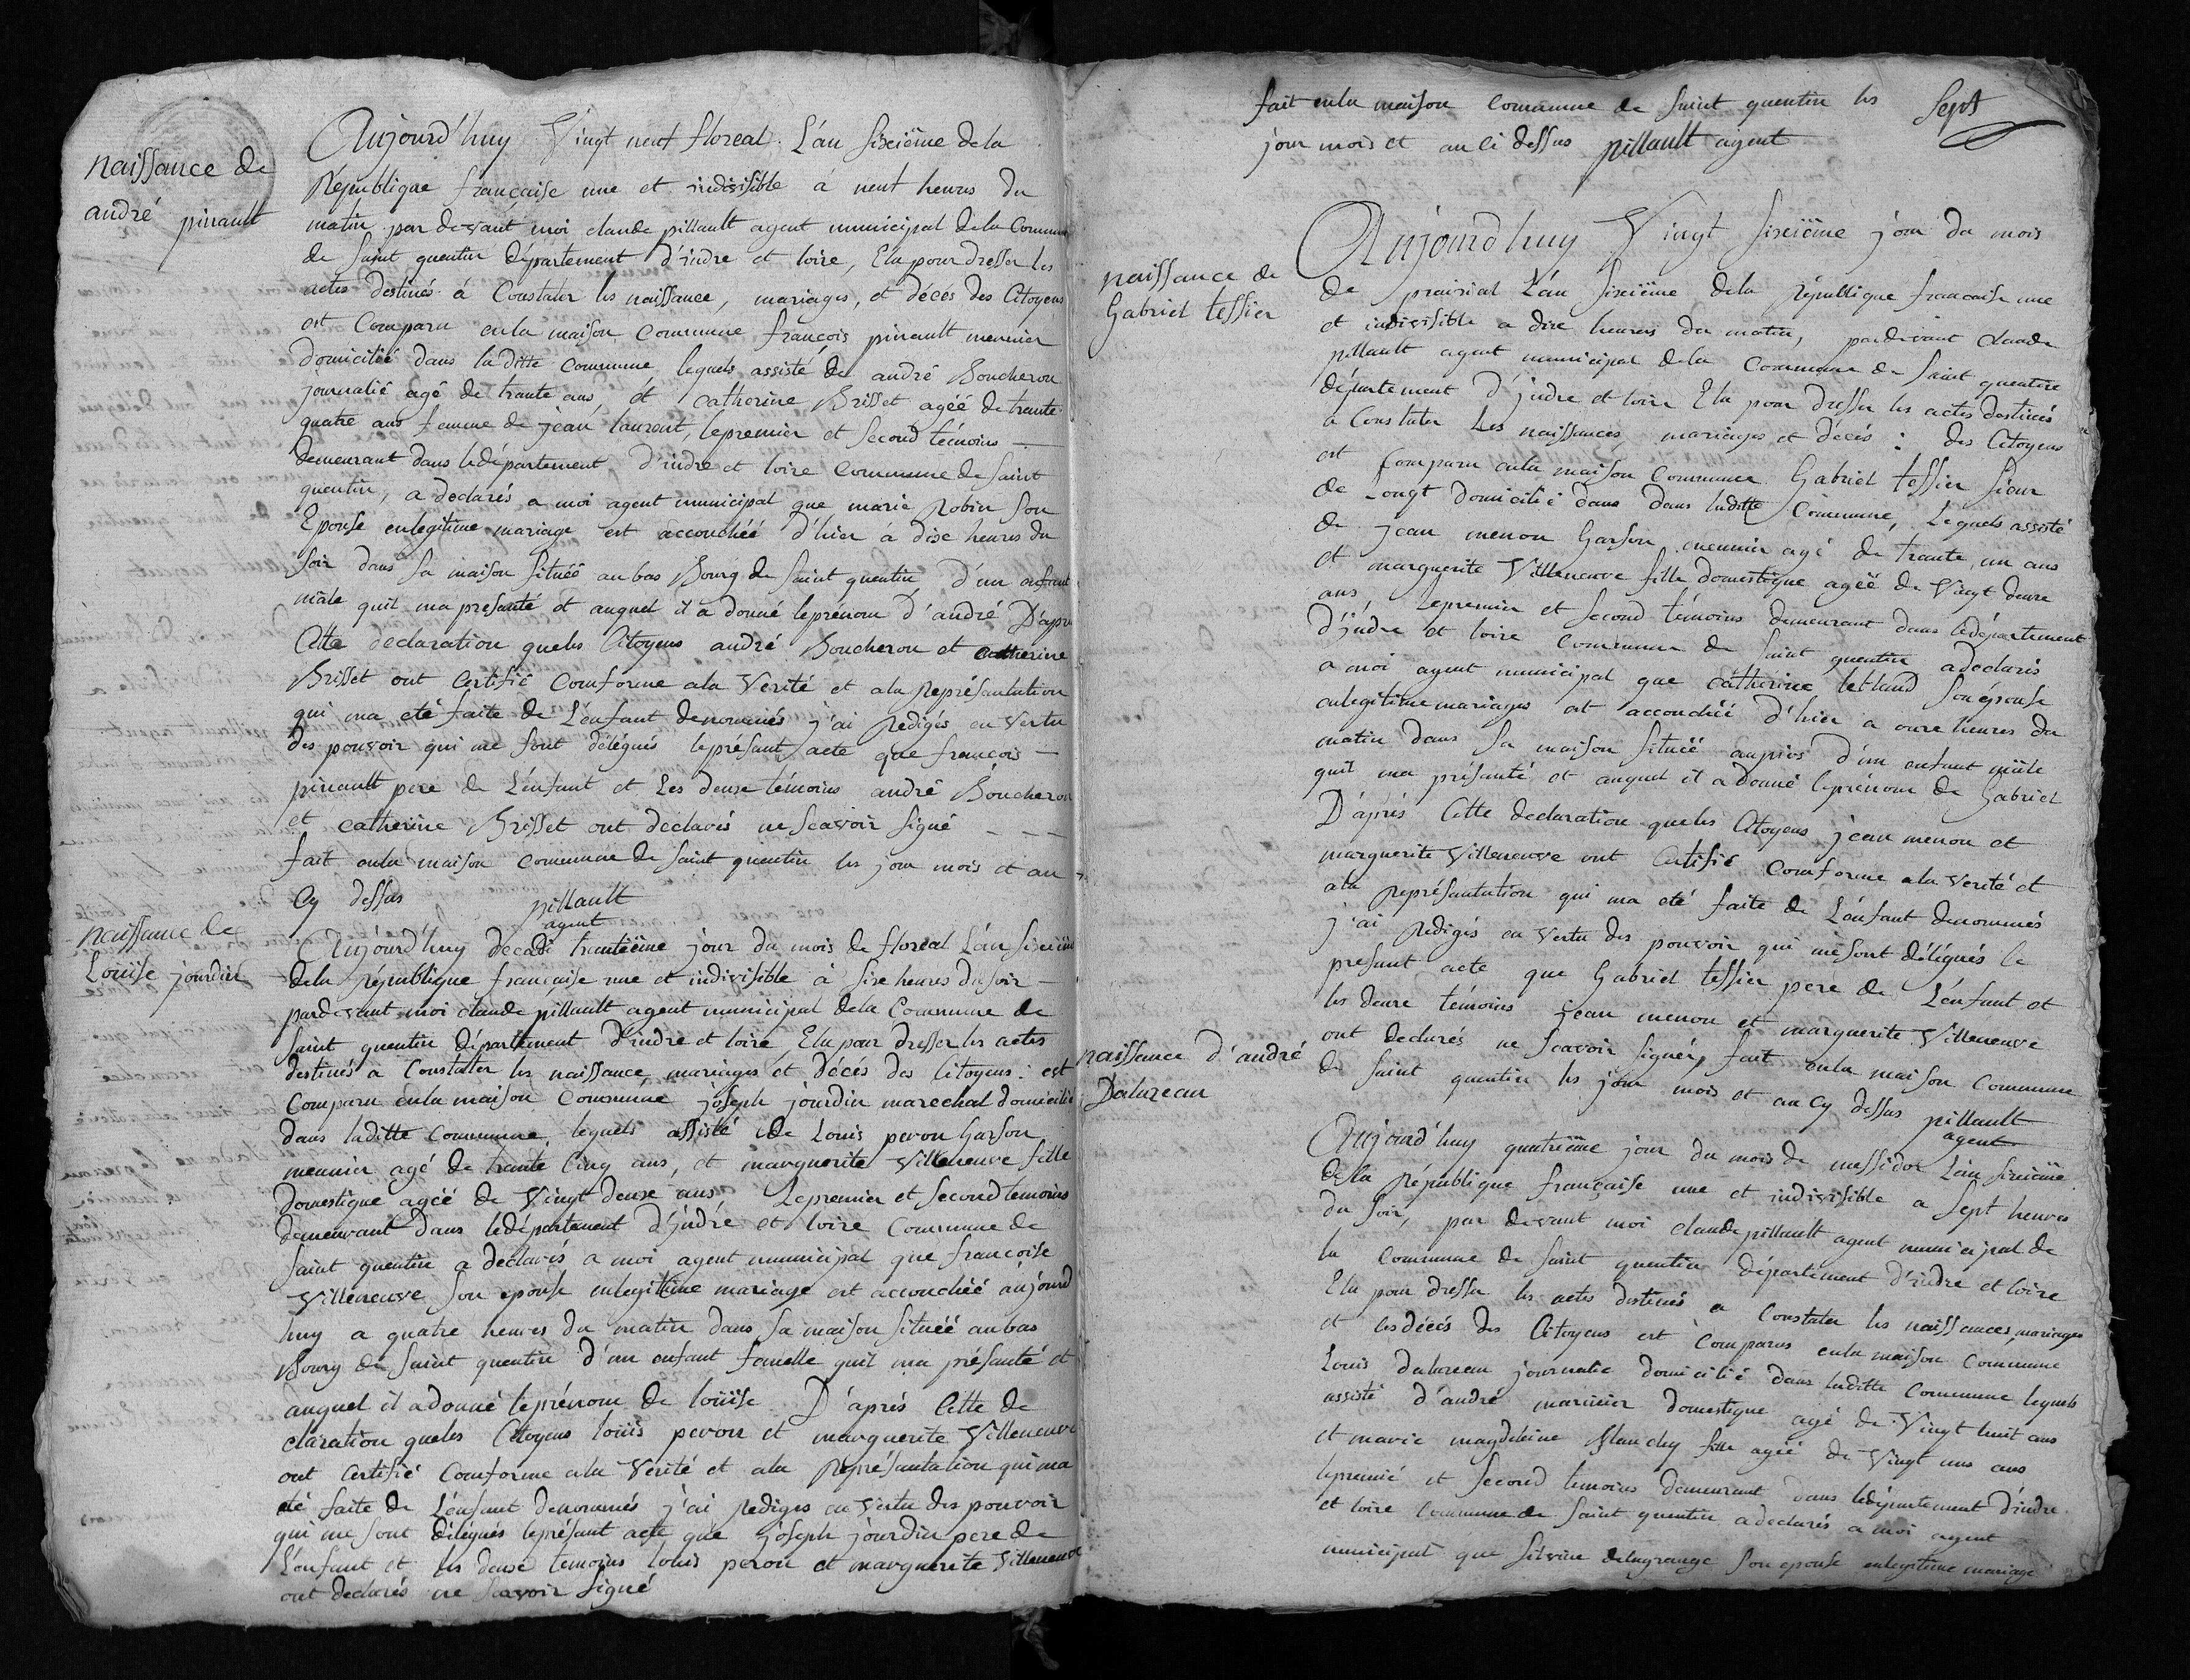 naissance de
andré pinault
Aujourd'huy Vingt neuf floreal L'an Sixieïme dela
République française une et indivisible à neuf heures du
matin par devant moi claude pillault agent municipal dela Commune
de Saint quentin département d'indre et loire, Elu pour dresser les
actes destinés à Constater les naissance, mariages, et décés des Citoyens
est Comparu enla maison Commune francois pinault meunier
domicilié dans la ditte Commune lequels assisté de andré Boucheron
journalié agé de trante ans, et catherine Brisset agéé de trante
quatre ans femme de jean laurent, lepremier et Second témoins —
demeurant dans ledépartement d'indre et loire Commune de Saint
quentin, a declarés a moi agent municipal que marie Robin Son
Epouse enlegitime mariage est accouchéé d'hier à dixe heures du
Soir dans Sa maison Situéé au bas Bourg de Saint quentin d'un enfant
mâle quil ma presanté et auquel il a donné leprénom d'andré D'apré
Cette declaration queles Citoyens andré Boucheron et catherine
Brisset ont Certifié Comforme ala Verité et ala Représantation
qui ma eté faite de L'enfant denommés j'ai Redigés en Vertu
des pouvoir qui me Sont délégués leprésant acte que francois —
pinault pere de L'enfant et Les deuxe témoins andré Boucheron
et catherine Brisset ont declarés ne Scavoir Signé - - -
fait enla maison Commune de Saint quentin les jour mois et an
Cy dessus pillault
agent
naissance de
Louïise jourdin
Aujourd'huy decadi trantieïme jour du mois de floreal L'an Sixieïme
dela République française une et indivisible à Sixe heures du Soir —
pardevant moi claude pillault agent municipal dela Commune de
Saint quentin département d'indre et loire Elu pour dresser les actes
destinés à Constater les naissance, mariages et décés des Citoyens : est
Comparu enla maison Commune joseph jourdin marechal domicilié
dans laditte Commune, lequels assisté de Louis peron Garson
meunier agé de trante Cinq ans, et marguerite Villeneuve fille
domestique agéé de Vingt deuxe ans, Lepremier et Second temoins
demeurant dans ledépartement d'jndré et loire Commune de
Saint quentin a declarés a moi agent municipal que francoise
Villeneuve Son epouse enlegitime mariage est accouchéé aujourd
huy a quatre heures du matin dans Sa maison Situéé au bas
Bourg de Saint quentin d'un enfant famelle quil ma présanté et
auquel il a donné leprénom de louïise. D'aprés Cette de
claration queles Citoyens louïis peron et marguerite Villeneuve
ont Certifié Comforme ala Verité et ala Représantation qui ma
eté faite de L'enfant denommés j'ai Rediges en Vertu des pouvoir
qui me Sont délégués leprésant acte que joseph jourdin pere de
L'enfant et les deuxe temoins louis peron et marguerite Villeneuve
ont declarés ne Scavoir Signé
fait enla maison Commune de Saint quentin les
jour mois et an Ci dessus pillault agent
Sept
naissance de
Gabriel tessier
Aujourd'huy Vingt Sixieïme jour du mois
de prairial L'an Sixieïme dela République francaise une
et indivisible a dixe heures du matin, pardevant claude
pillault agent municipal dela Commune de Saint quentin
département d'jndre et loire Elu pour dresser les actes destinés
a Constater Les naissances, mariages et décés : des Citoyens
est Comparu enla maison Commune Gabriel tessier Sieur
de Longt domicilié dans dans laditte Commune, Lequels assisté
de jean menou Garson meunier agé de trante un ans
et marguerite Villeneuve fille domestique agéé de Vingt deuxe
ans, Lepremier et Second témoins demeurant dans ledépartement
d'jndre et loire Commune de Saint quentin a declarés
a moi agent municipal que catherine Son épouse
enlegitime mariages est accouchéé d'hier a onxe heures du
matin dans Sa maison Situéé d'un enfant mâle
quil ma présanté et auquel il a donné leprénom de Gabriel
D'aprés Cette declaration queles Citoyens jean menou et
marguerite Villeneuve ont Certifié Comforme ala Verité et
ala Représantation qui ma eté faite de L'enfant denommés
j'ai Redigés en Vertu des pouvoir qui me Sont délégués le
presant acte que Gabriel tessier pere de L'enfant et
les deuxe témoins jean menou et marguerite Villeneuve
ont declarés ne Scavoir Signér, fait enla maison Commune
de Saint quentin les jour mois et an Cy dessus pillault
agent
naissance d'andré
Daluzeau
Aujourd'huy quatrieïme jour du mois de messidor L'an Sixieïme
dela République française une et indivisible a Sept heures
du Soir, par devant moi claude pillault agent municipal de
la Commune de Saint quentin département d'indre et loire
Elu pour dresser les actes destinés a Constater les naissances, mariages
et les décés des Citoyens est Comparus enla maison Commune
Louis Daluzeau journalié domicilié dans laditte Commune lequels
assisté d'andré domestique agé de Vingt huit ans
et marie magdeleine fille agéé de Vingt uns ans
lepremié et Second temoins demeurant dans ledépartement d'indre
et loire Commune de Saint quentin a declarés a moi agent
municipal que Silvine delagrange Son epouse enlegitime mariage